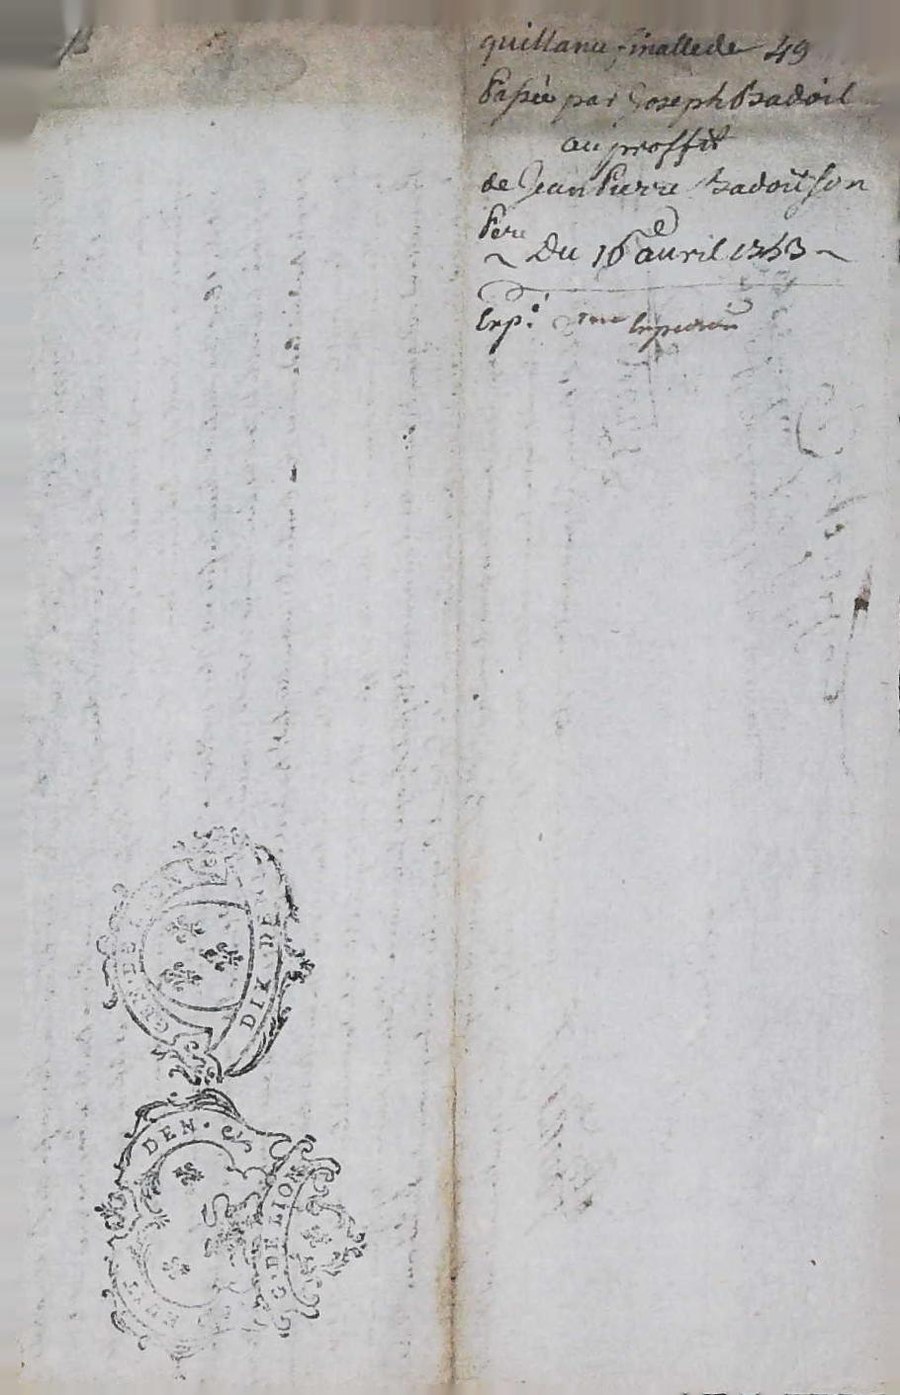 quittance finallede 49
Passée par Joseph Badoil
au proffit
de Jean Pierre Badoil son
Pere
~ du 16e avril 1743 ~
Exp.é
GEN. DE LION
DIX DEN.
DEN.
G. DE LION